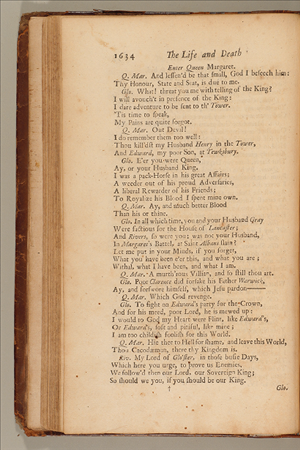 1634 The Life and Death
Enter Queen Margaret.
Q. Mar. And lessen'd be that small, God I beseech him:
Thy Honour, State and Seat, is due to me.
Glo. What! threat you me with telling of the King?
I will avouch't in presence of the King:
I dare adventure to be sent to th' Tower.
'Tis time to speak,
My Pains are quite forgot.
Q. Mar. Out Devil!
I do remember them too well:
Thou kill'dst my Husband Henry in the Tower,
And Edward, my poor Son, at Tewksbury.
Glo. E'er you were Queen,
Ay, or your Husband King,
I was a pack-Horse in his great Affairs;
A weeder out of his proud Adversaries,
A liberal Rewarder of his Friends;
To Royalize his Blood I spent mine own.
Q. Mar. Ay, and much better Blood
Than his or thine.
Glo. In all which time, you and your Husband Gray
Were factious for the House of Lancaster;
And Rivers, so were you; was not your Husband,
In Margaret's Battel, at Saint Albans slain?
Let me put in your Minds, if you forget,
What you have been e'er this, and what you are;
Withal, what I have been, and what I am.
Q. Mar. A murth'rous Villain, and so still thou art.
Glo. Poor Clarence did forsake his Father Warwick,
Ay, and forswore himself, which Jesu pardon——
Q. Mar. Which God revenge.
Glo. To fight on Edward's party for the Crown,
And for his meed, poor Lord, he is mewed up:
I would to God my Heart were Flint, like Edward's,
Or Edward's, soft and pitiful, like mine;
I am too childish foolish for this World.
Q. Mar. Hie thee to Hell for shame, and leave this World,
Thou Cacodæmon, there thy Kingdom is.
Riv. My Lord of Glo'ster, in those busie Days,
Which here you urge, to prove us Enemies,
We follow'd then our Lord, our Sovereign King;
So should we you, if you should be our King.
Glo.